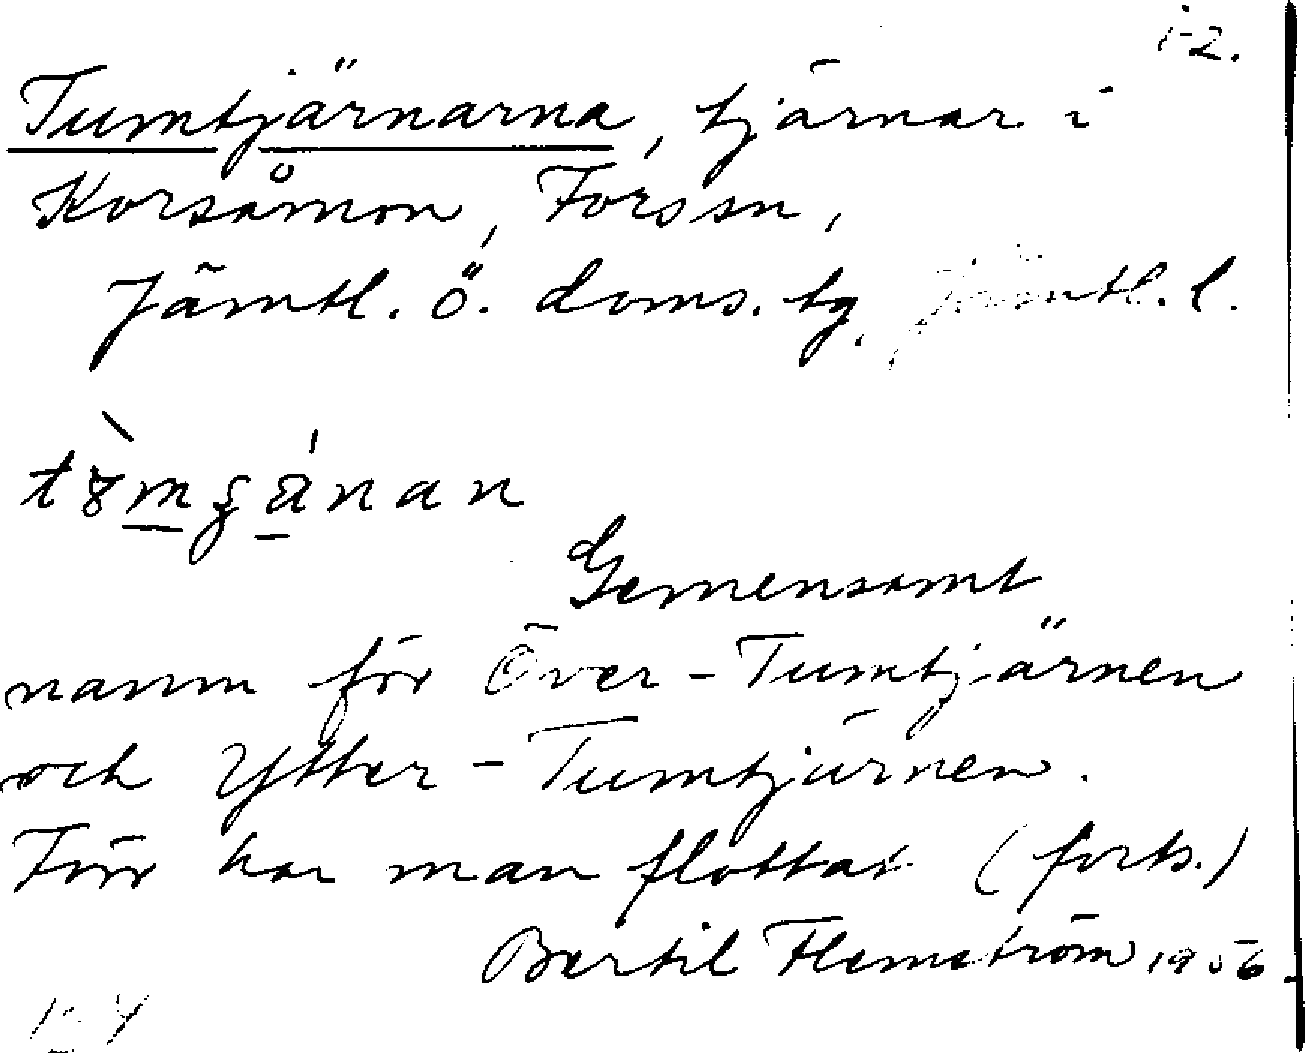 1-2.
Tumtjärnarna, tjärnar i
Korsåmon, Fors sn,
Jämtl. ö. doms. tg, Jämtl. l.
Gemensamt
namn för Över-Tumtjärnen
och Ytter-Tumtjärnen.
Förr har man flottat (forts.)
Bertil Flemström 1956.